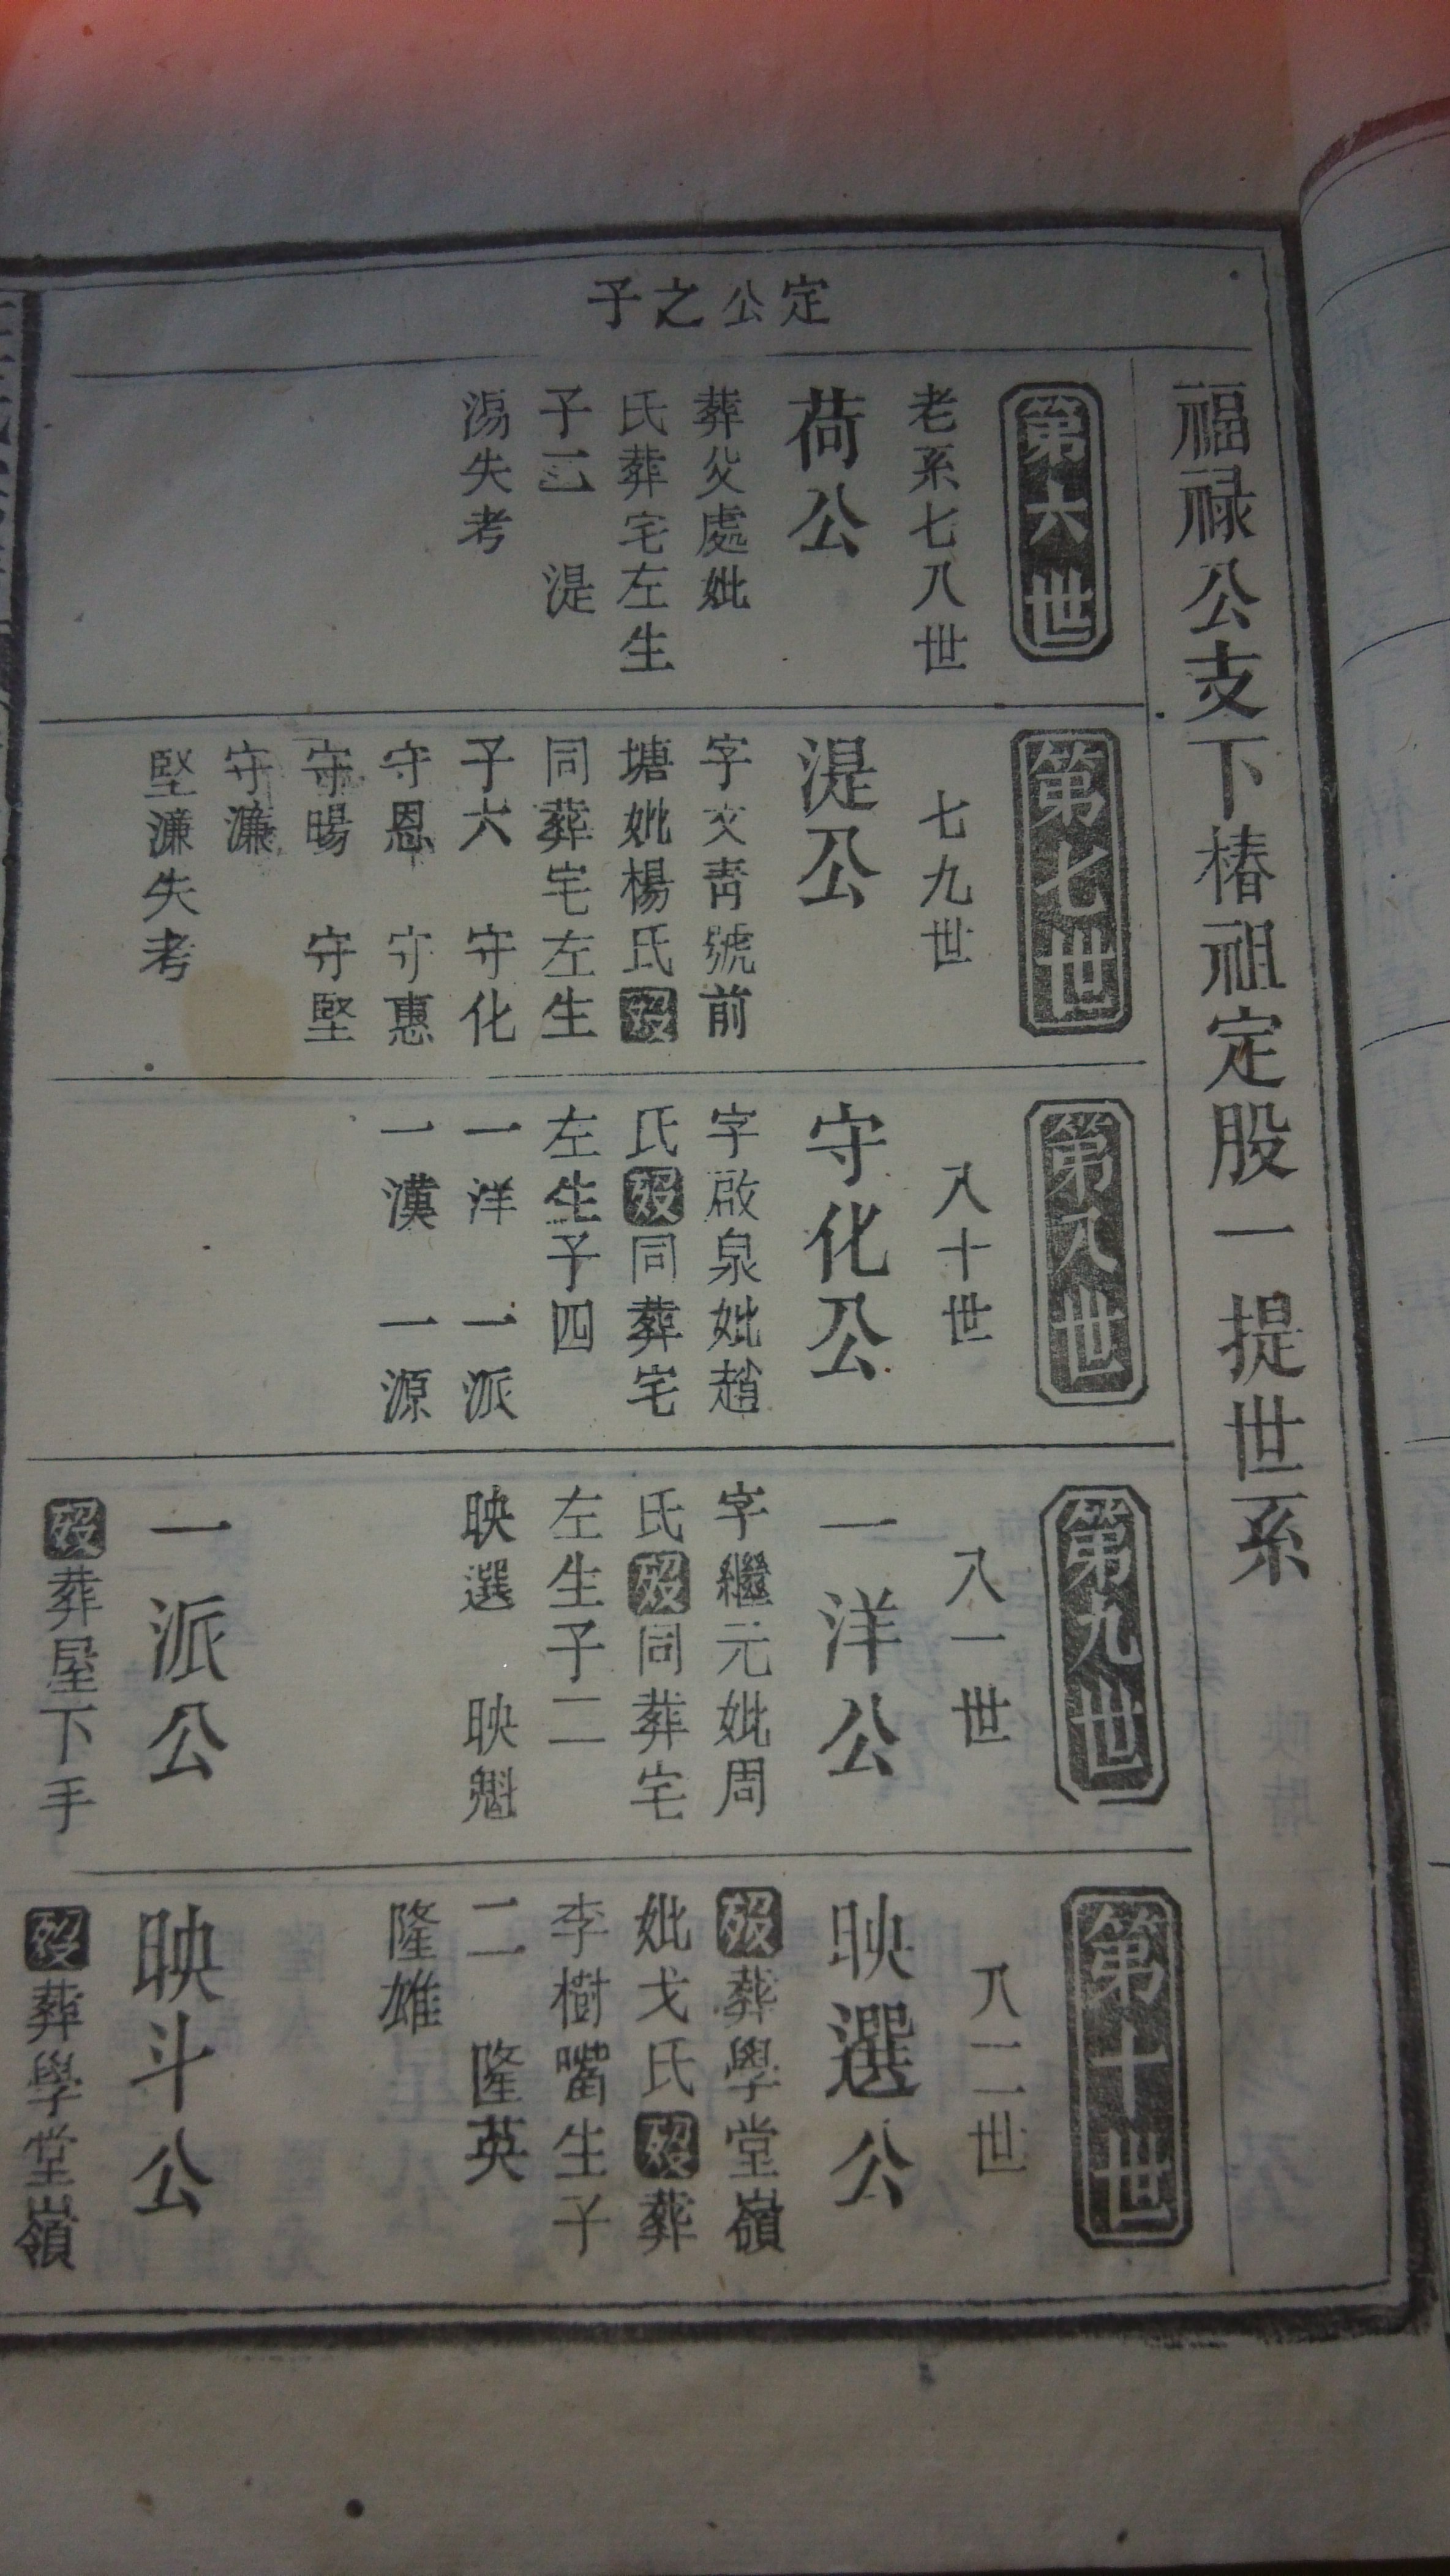 福禄公支下椿祖定股一提世系
定公之子
第六世
老系七八世
荷公
葬父處妣
氏葬宅左生
子二 湜
湯失考
第七世
七九世
湜公
字文青號前
塘妣楊氏歿
同葬宅左生
子六 守化
守恩 守惠
守暘 守堅
守濂
堅濂失考
第八世
八十世
守化公
字啟泉妣趙
氏歿同葬宅
左生子四
一洋 一派
一漢 一源
第九世
八一世
一洋公
字繼元妣周
氏歿同葬宅
左生子二
映選 映魁
一派公
歿葬屋下手
第十世
八二世
映選公
歿葬學堂嶺
妣戈氏歿葬
李樹嘴生子
二 隆英
隆雄
映斗公
歿葬學堂嶺